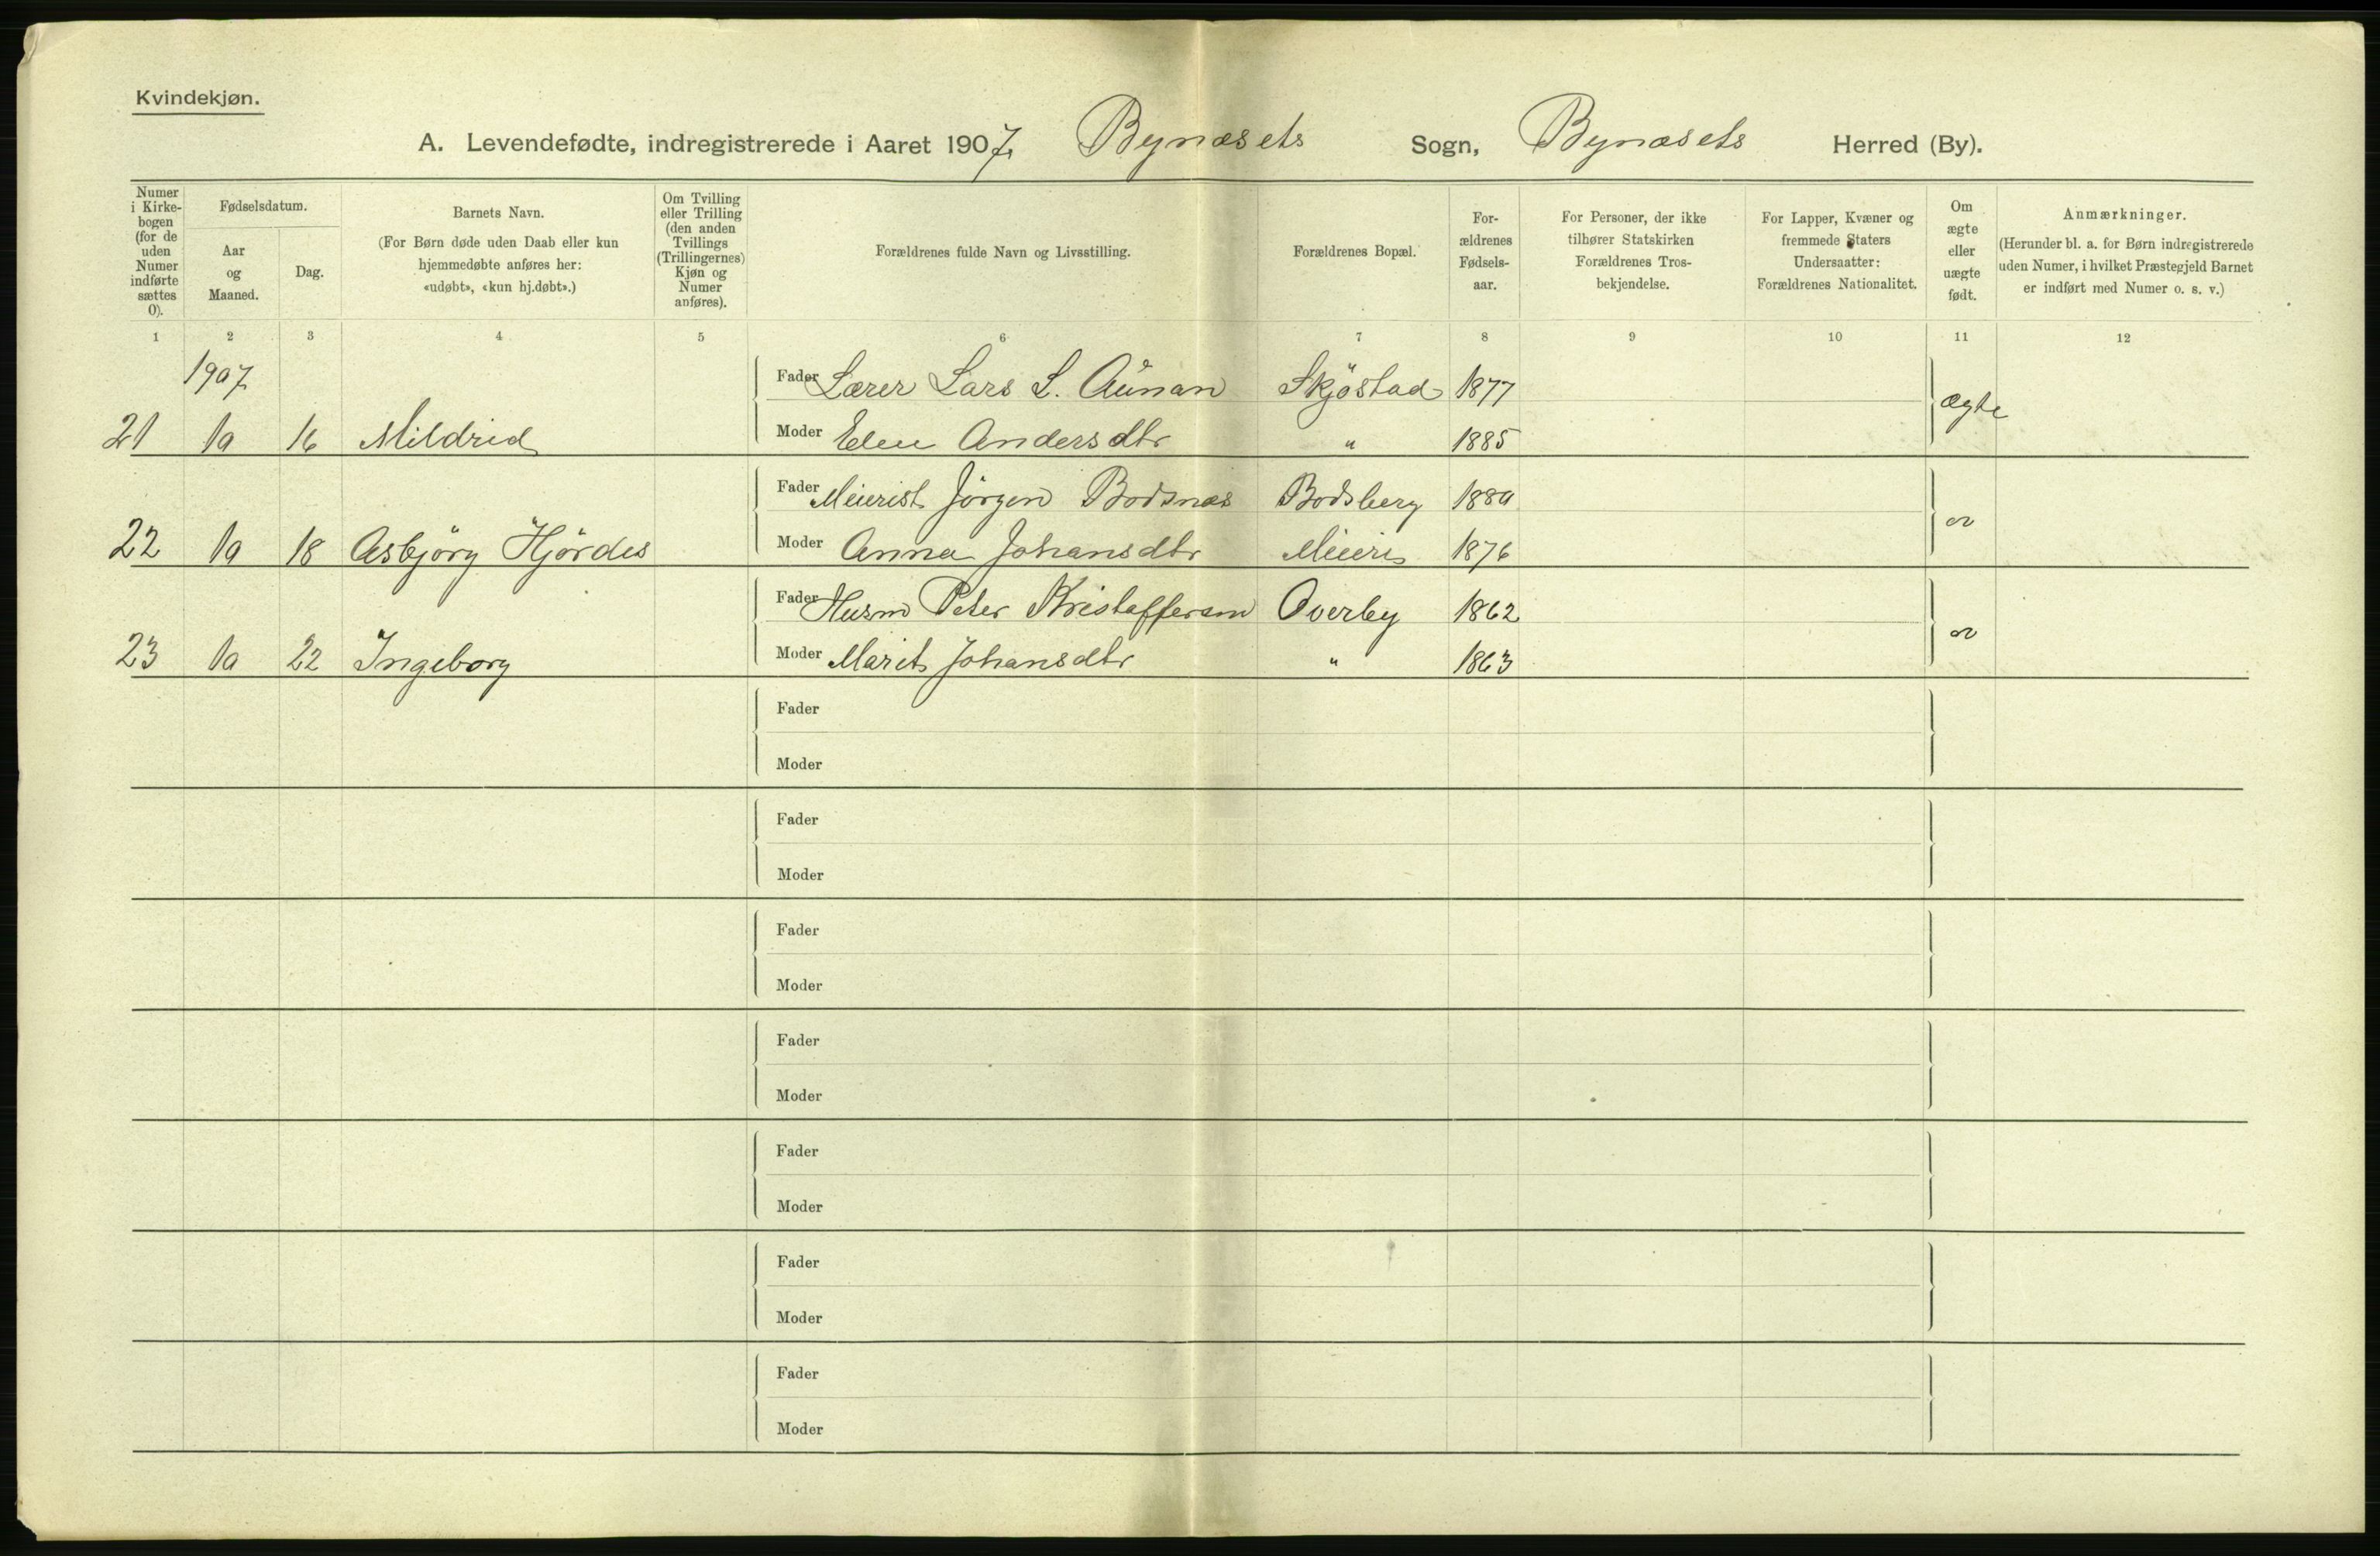 Kvindekjøn.
A. Levendefødte, indregistrerede i Aaret 1907. Bynæsets Sogn, Bynæsets Herred (By).
Numer i Kirkebogen (for de uden Numer indførte sættes 0).
Fødselsdatum.
Aar og Maaned.
Dag.
Barnets Navn.
(For Børn døde uden Daab eller kun hjemmedøbte anføres her: «udøbt», «kun hj.døbt».)
Om Tvilling eller Trilling (den anden Tvillings (Trillingernes) Kjøn og Numer anføres).
Forældrenes fulde Navn og Livsstilling.
Forældrenes Bopæl.
For-ældrenes Fødsels-aar.
For Personer, der ikke tilhører Statskirken Forældrenes Tros-bekjendelse.
For Lapper, Kvæner og fremmede Staters Undersaatter: Forældrenes Nationalitet.
Om ægte eller uægte født.
Anmærkninger.
(Herunder bl. a. for Børn indregistrerede uden Numer, i hvilket Præstegjeld Barnet er indført med Numer o. s. v.)
1 2 3 4 5 6 7 8 9 10 11 12
1907. Fader Lærer Lars L. Aunan Skjöstad 1877 ægte
21 10 16 Mildrid Moder Elen Andersdtr " 1885
Fader Meierist Jörgen Bodsnæs Bodsberg 1880
22 10 18 Asbjörg Hjördis Moder Anna Johansdtr Meieri 1876
Fader Husm Peter Kristoffersen Overby 1862
23 10 22 Ingeborg Moder Marit Johansdtr " 1863
Fader
Moder
Fader
Moder
Fader
Moder
Fader
Moder
Fader
Moder
Fader
Moder
Fader
Moder